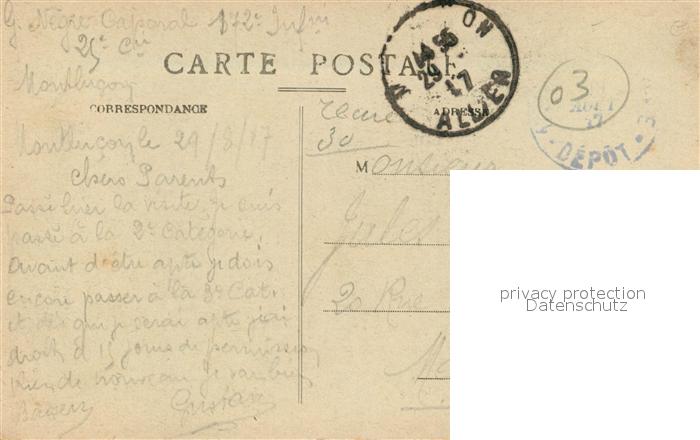 G. Nègre Caporal 172e Infrie
25e Cie
Montluçon
CARTE POSTALE
CORRESPONDANCE
ADRESSE
ON
14 55
29
17
ALLIER
03
AOUT
17
DÉPÔT
30
Montluçon le 29/8/17
Chers Parents
Passé hier la visite, je suis
passé à la 2e Catégorie,
avant d'être apte je dois
encore passer à la 3e Cat.
et dès que je serai apte j'ai
droit à 15 jours de permission
Rien de nouveau je vais bien
Baisers Gustave
Monsieur
Jules
20 Rue
privacy protection
Datenschutz